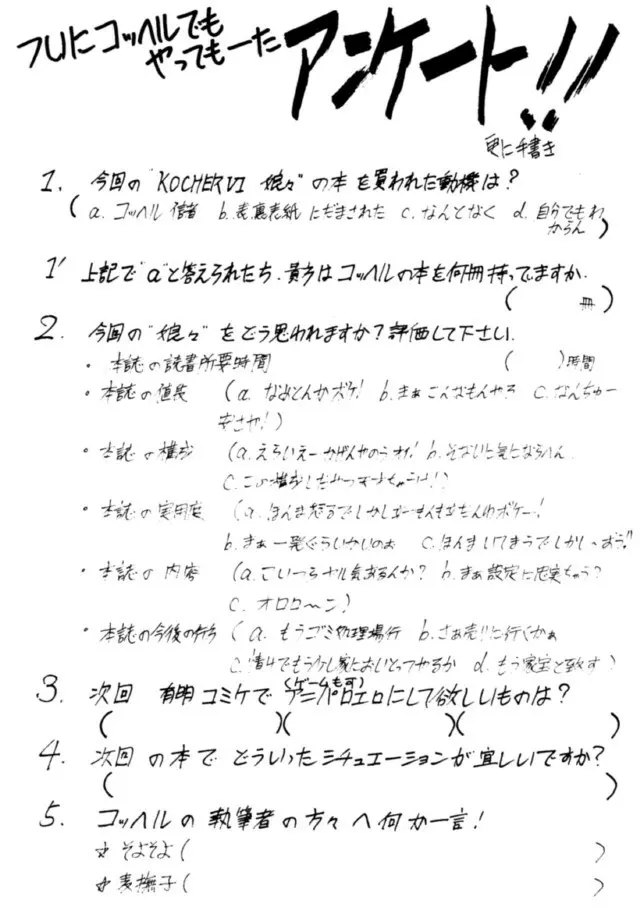 フリにコッヘルでも
やってもーた
アンケート!!
更に手書き
1. 今回の"KOCHER VI 娘々"の本を買われた動機は?
(a. コッヘル信者 b. 表裏表紙にだまされた c. なんとなく d. 自分でもわ
からん)
1' 上記で"a"と答えられたち、貴方はコッヘルの本を何冊持ってますか.
( 冊)
2. 今回の"娘々"をどう思われますか?評価して下さい.
・本誌の読書所要時間 ( )時間
・本誌の値段 (a. なめとんかボケ! b. まぁこんなもんやろ c. なんちゅー
安さや!)
・本誌の構成 (a. えらいえーかげんやのうオイ! b. そないに気にならへん
c. この構成
・本誌の実用度 (a.
b. まぁ一発ぐらいかいのぉ c. ほんまいてまうでしかし
・本誌の内容 (a. こいつらナル気あるんか? b. まぁ設定に忠実ちゃう?
c. オロロ〜ン)
・本誌の今後の行方 (a. もうゴミ処理場行 b. さぁ売りに行くかぁ
c. 情けでもう少し家においとってやるか d. もう家宝と致す)
3. 次回 有明コミケでアニパロエロにして欲しいものは?
(ゲームも可)
( )( )( )
4. 次回の本でどういったシチュエーションが宜しいですか?
( )
5. コッヘルの執筆者の方々へ何か一言!
☆そよそよ( )
☆麦撫子( )